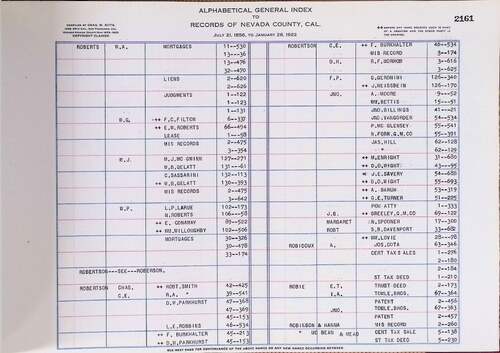 ALPHABETICAL GENERAL INDEX
TO
RECORDS OF NEVADA COUNTY, CAL.
JULY 21, 1856, TO JANUARY 28, 1922
COPYRIGHT CLAIMED
2161
ROBERTS W.A. MORTGAGES 11--530
13---36
13--476
32--470
LIENS 2--620
2--626
JUDGMENTS 1--122
1--123
1--131
W.G. ++ F.C.FILTON 6--337
++ E.W.ROBERTS 66--454
LEASE 1---58
MIS RECORDS 2--475
3--354
W.J. M.J.MC GNISH 127--271
W.B.GELATT 131---61
C.BASSARINI 132--113
++ W.B.GELATT 130--393
MIS RECORDS 2--475
3--642
W.P. L.P.LARUE 102--173
N.ROBERTS 106---58
++ E. CONAWAY 89--502
++ WM.WILLOUGHBY 102--506
MORTGAGES 30--326
30--448
33--174
ROBERTSON---SEE---ROBERSON.
ROBERTSON CHAS. ++ ROBT.SMITH 42--425
C.E. ++ R.A. " 39--541
D.H.PARKHURST 47--368
47--369
45--153
L.E.ROBBINS 46--534
++ F. BURKHALTER 45--213
++ D.H.PARKHURST 45--153
ROBERTSON C.E. ++ F. BURKHALTER 46--534
MIS RECORD 3--174
D.H. R.F.MORROW 3--616
3--625
F.P. C.GERONIMI 126--340
++ J.WEISSBEIN 126--170
JNO. A.MOORE 9---52
WM.BETTIS 15---51
JNO.BILLINGS 41---21
JNO.VANGORDER 54--534
P.MC GLENSEY 55--541
N.FORM.G.M.CO 55--391
JAS.HILL 62--128
" 62--129
++ M.ENRIGHT 31--680
++ D.D.WIGHT 43---95
++ J.E.SAVERY 54--680
++ D.D.WIGHT 55--693
++ A.BARUH 53--319
++ G.E.TURNER 51--225
POW ATTY 1--333
J.B. ++ GREELEY,G.M.CO 69--122
MARGARET N.SPOONER 17--300
ROBT S.R.DAVENPORT 33--682
++ WM.LOVIE 28---78
ROBIDOUX A. JOS.COTA 63--346
CERT TAX SALES 1--276
2--180
2--184
ST TAX DEED 1--210
ROBIE E.T. TRUST DEED 2--173
E.A. TOWLE,BROS. 67--364
PATENT 2--456
JNO. TOWLE,BROS. 67--364
PATENT 2--457
ROBINSON & HANNA MIS RECORD 2--260
" MC BEAN & HEAD CERT TAX SALE 5--138
ST TAX DEED 5--230
SEE NEXT PAGE FOR CONTINUANCE OF THE ABOVE NAMES OR ANY NEW NAMES OCCURRING BETWEEN